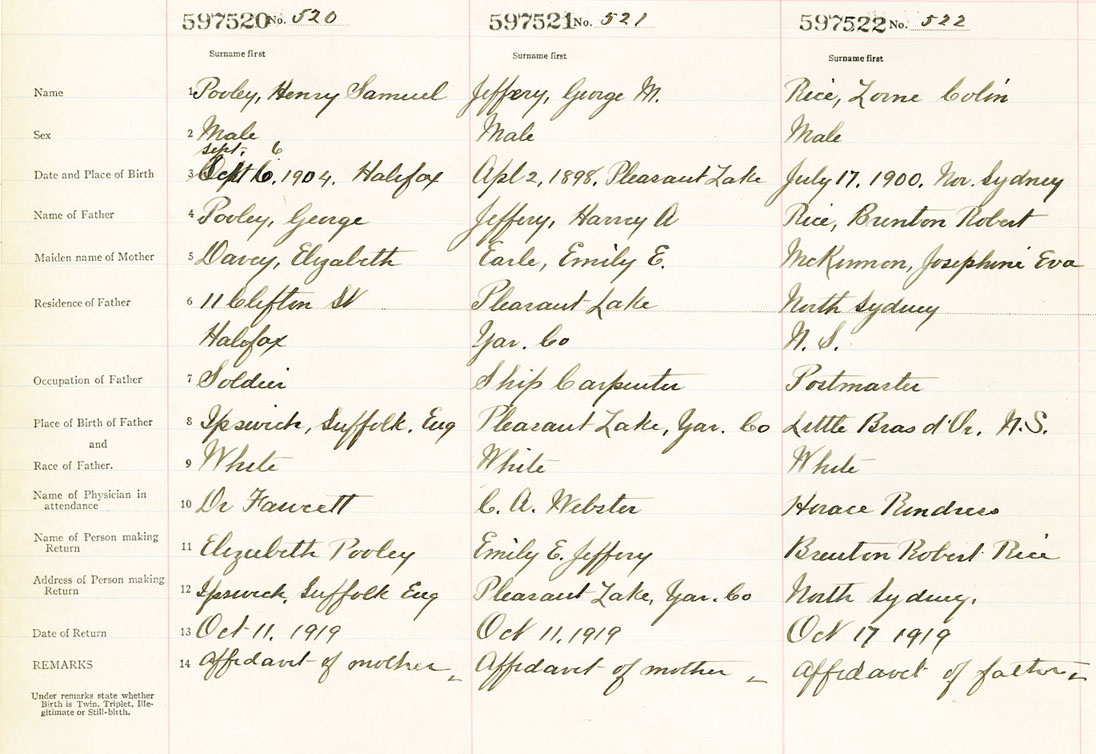 597520 No. 520 597521 No. 521 597522 No. 522
Surname first Surname first Surname first
Name 1 Pooley, Henry Samuel Jeffery, George M. Rice, Lorne Colin
Sex 2 Male Male Male
Sept. 6
Date and Place of Birth 3 Sept 6, 1904. Halifax Apl 2, 1898. Pleasant Lake July 17. 1900. Nor. Sydney
Name of Father 4 Pooley, George Jeffery, Harvey A Rice, Brenton Robert
Maiden name of Mother 5 Davey, Elizabeth Earle, Emily E. McKinnon, Josephine Eva
Residence of Father 6 11 Clifton St Pleasant Lake North Sydney
Halifax Yar. Co N. S.
Occupation of Father 7 Soldier Ship Carpenter Postmaster
Place of Birth of Father 8 Ipswich, Suffolk. Eng Pleasant Lake, Yar. Co Little Bras d'Or, N.S.
and
Race of Father. 9 White White White
Name of Physician in attendance 10 Dr Fawcett C. A. Webster Horace Rindress
Name of Person making Return 11 Elizabeth Pooley Emily E. Jeffery Brenton Robert Rice
Address of Person making Return 12 Ipswich, Suffolk Eng Pleasant Lake, Yar. Co North Sydney.
Date of Return 13 Oct 11. 1919 Oct 11. 1919 Oct 17 1919
REMARKS 14 Affidavit of mother Affidavit of mother Affidavit of father
Under remarks state whether
Birth is Twin, Triplet, Ille-
gitimate or Still-birth.